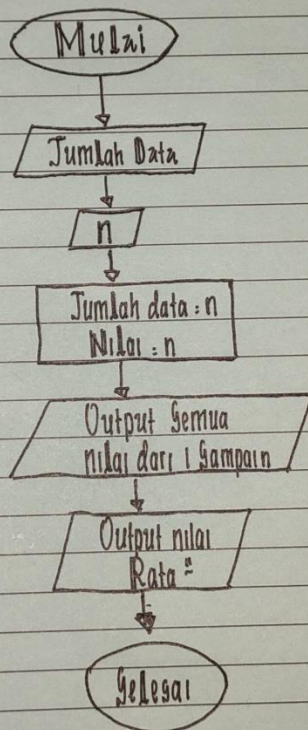 Mulai
Jumlah Data
n
Jumlah data : n
Nilai : n
Output Semua
nilai dari 1 Sampain
Output nilai
Rata"
Selesai